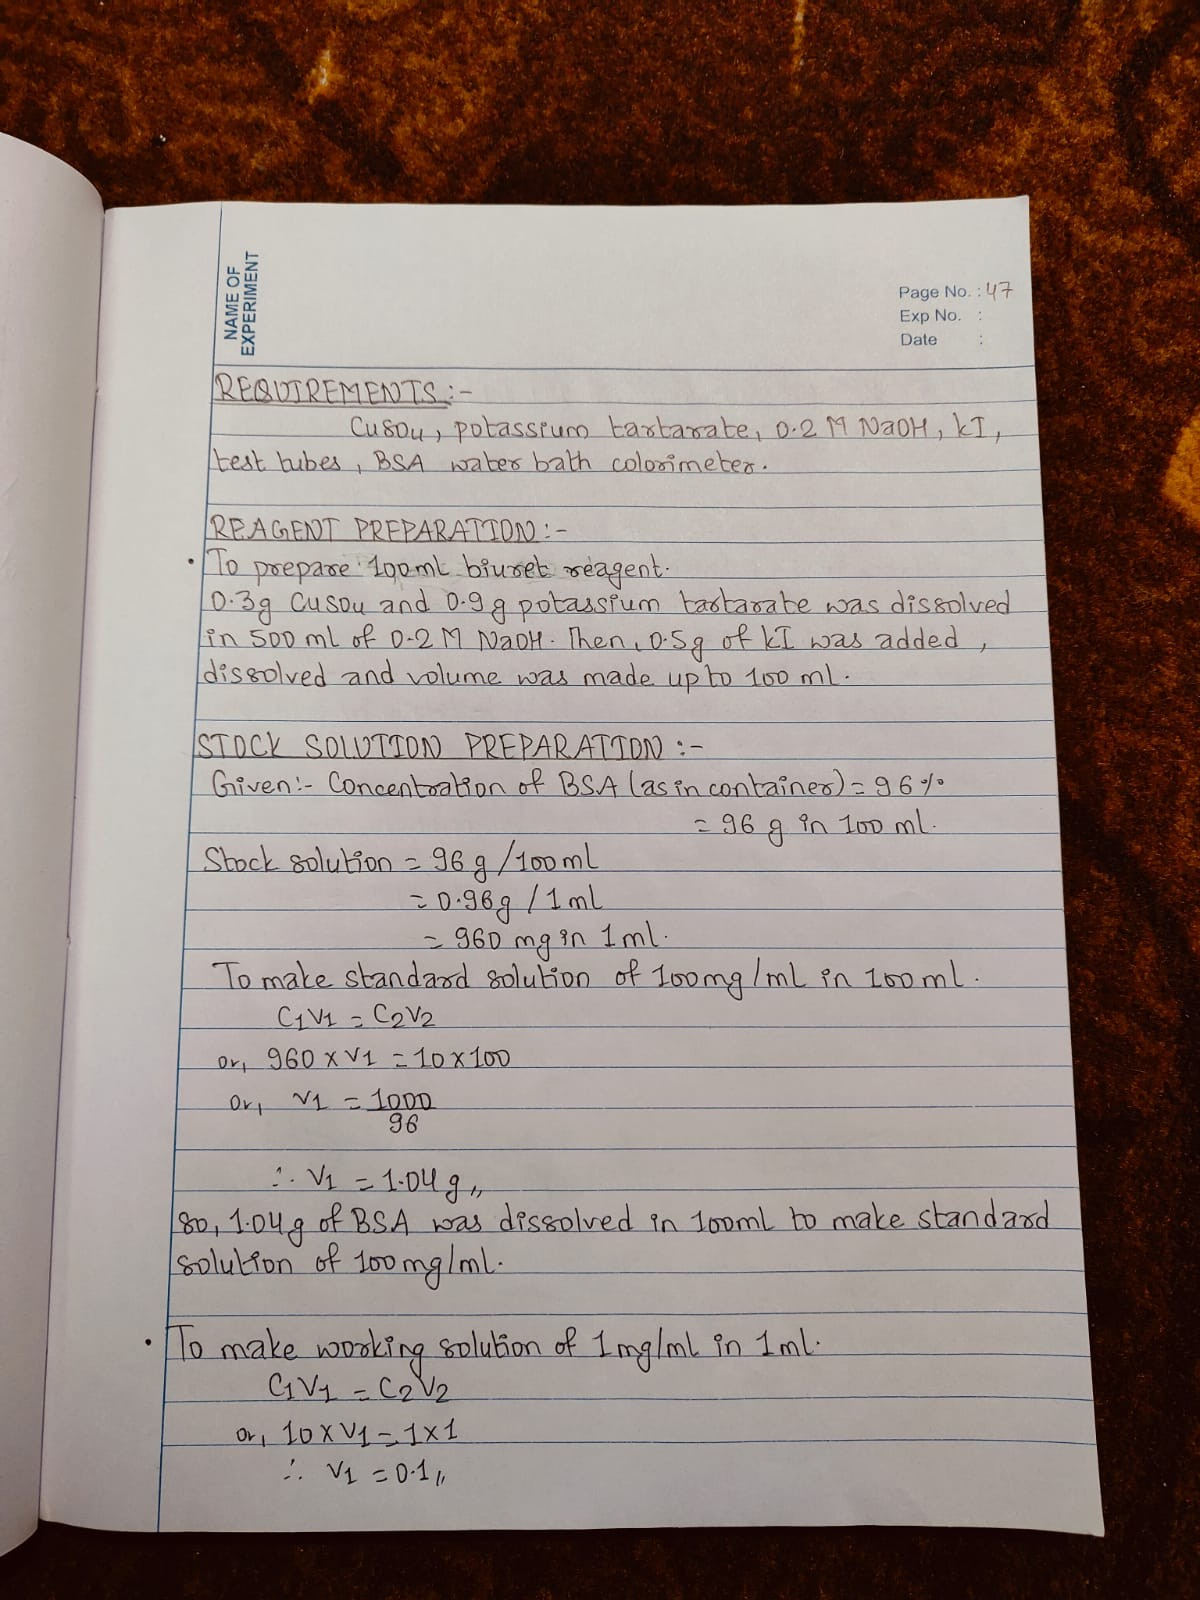 NAME OF
EXPERIMENT
Page No. : 47
Exp No. :
Date :
REQUIREMENTS :-
CuSO4, potassium tartarate, 0.2 M NaOH, kI,
test tubes, BSA water bath colorimeter.
REAGENT PREPARATION :-
• To prepare 100ml biuret reagent.
0.3g CuSO4 and 0.9 g potassium tartarate was dissolved
in 500 ml of 0.2 M NaOH. Then, 0.5g of kI was added,
dissolved and volume was made up to 100 ml.
STOCK SOLUTION PREPARATION :-
Given:- Concentration of BSA (as in container) = 96%
= 96 g in 100 ml.
Stock solution = 96 g /100ml
= 0.96g / 1 ml
= 960 mg in 1 ml.
To make standard solution of 100mg/ml in 100ml.
C1V1 = C2V2
or, 960 x V1 = 10 x 100
or, V1 = 1000
96
∴ V1 = 1.04 g,,
so, 1.04g of BSA was dissolved in 100ml to make standard
solution of 100mg/ml.
• To make working solution of 1 mg/ml in 1 ml.
C1V1 = C2V2
or, 10 x V1 = 1 x 1
∴ V1 = 0.1,,